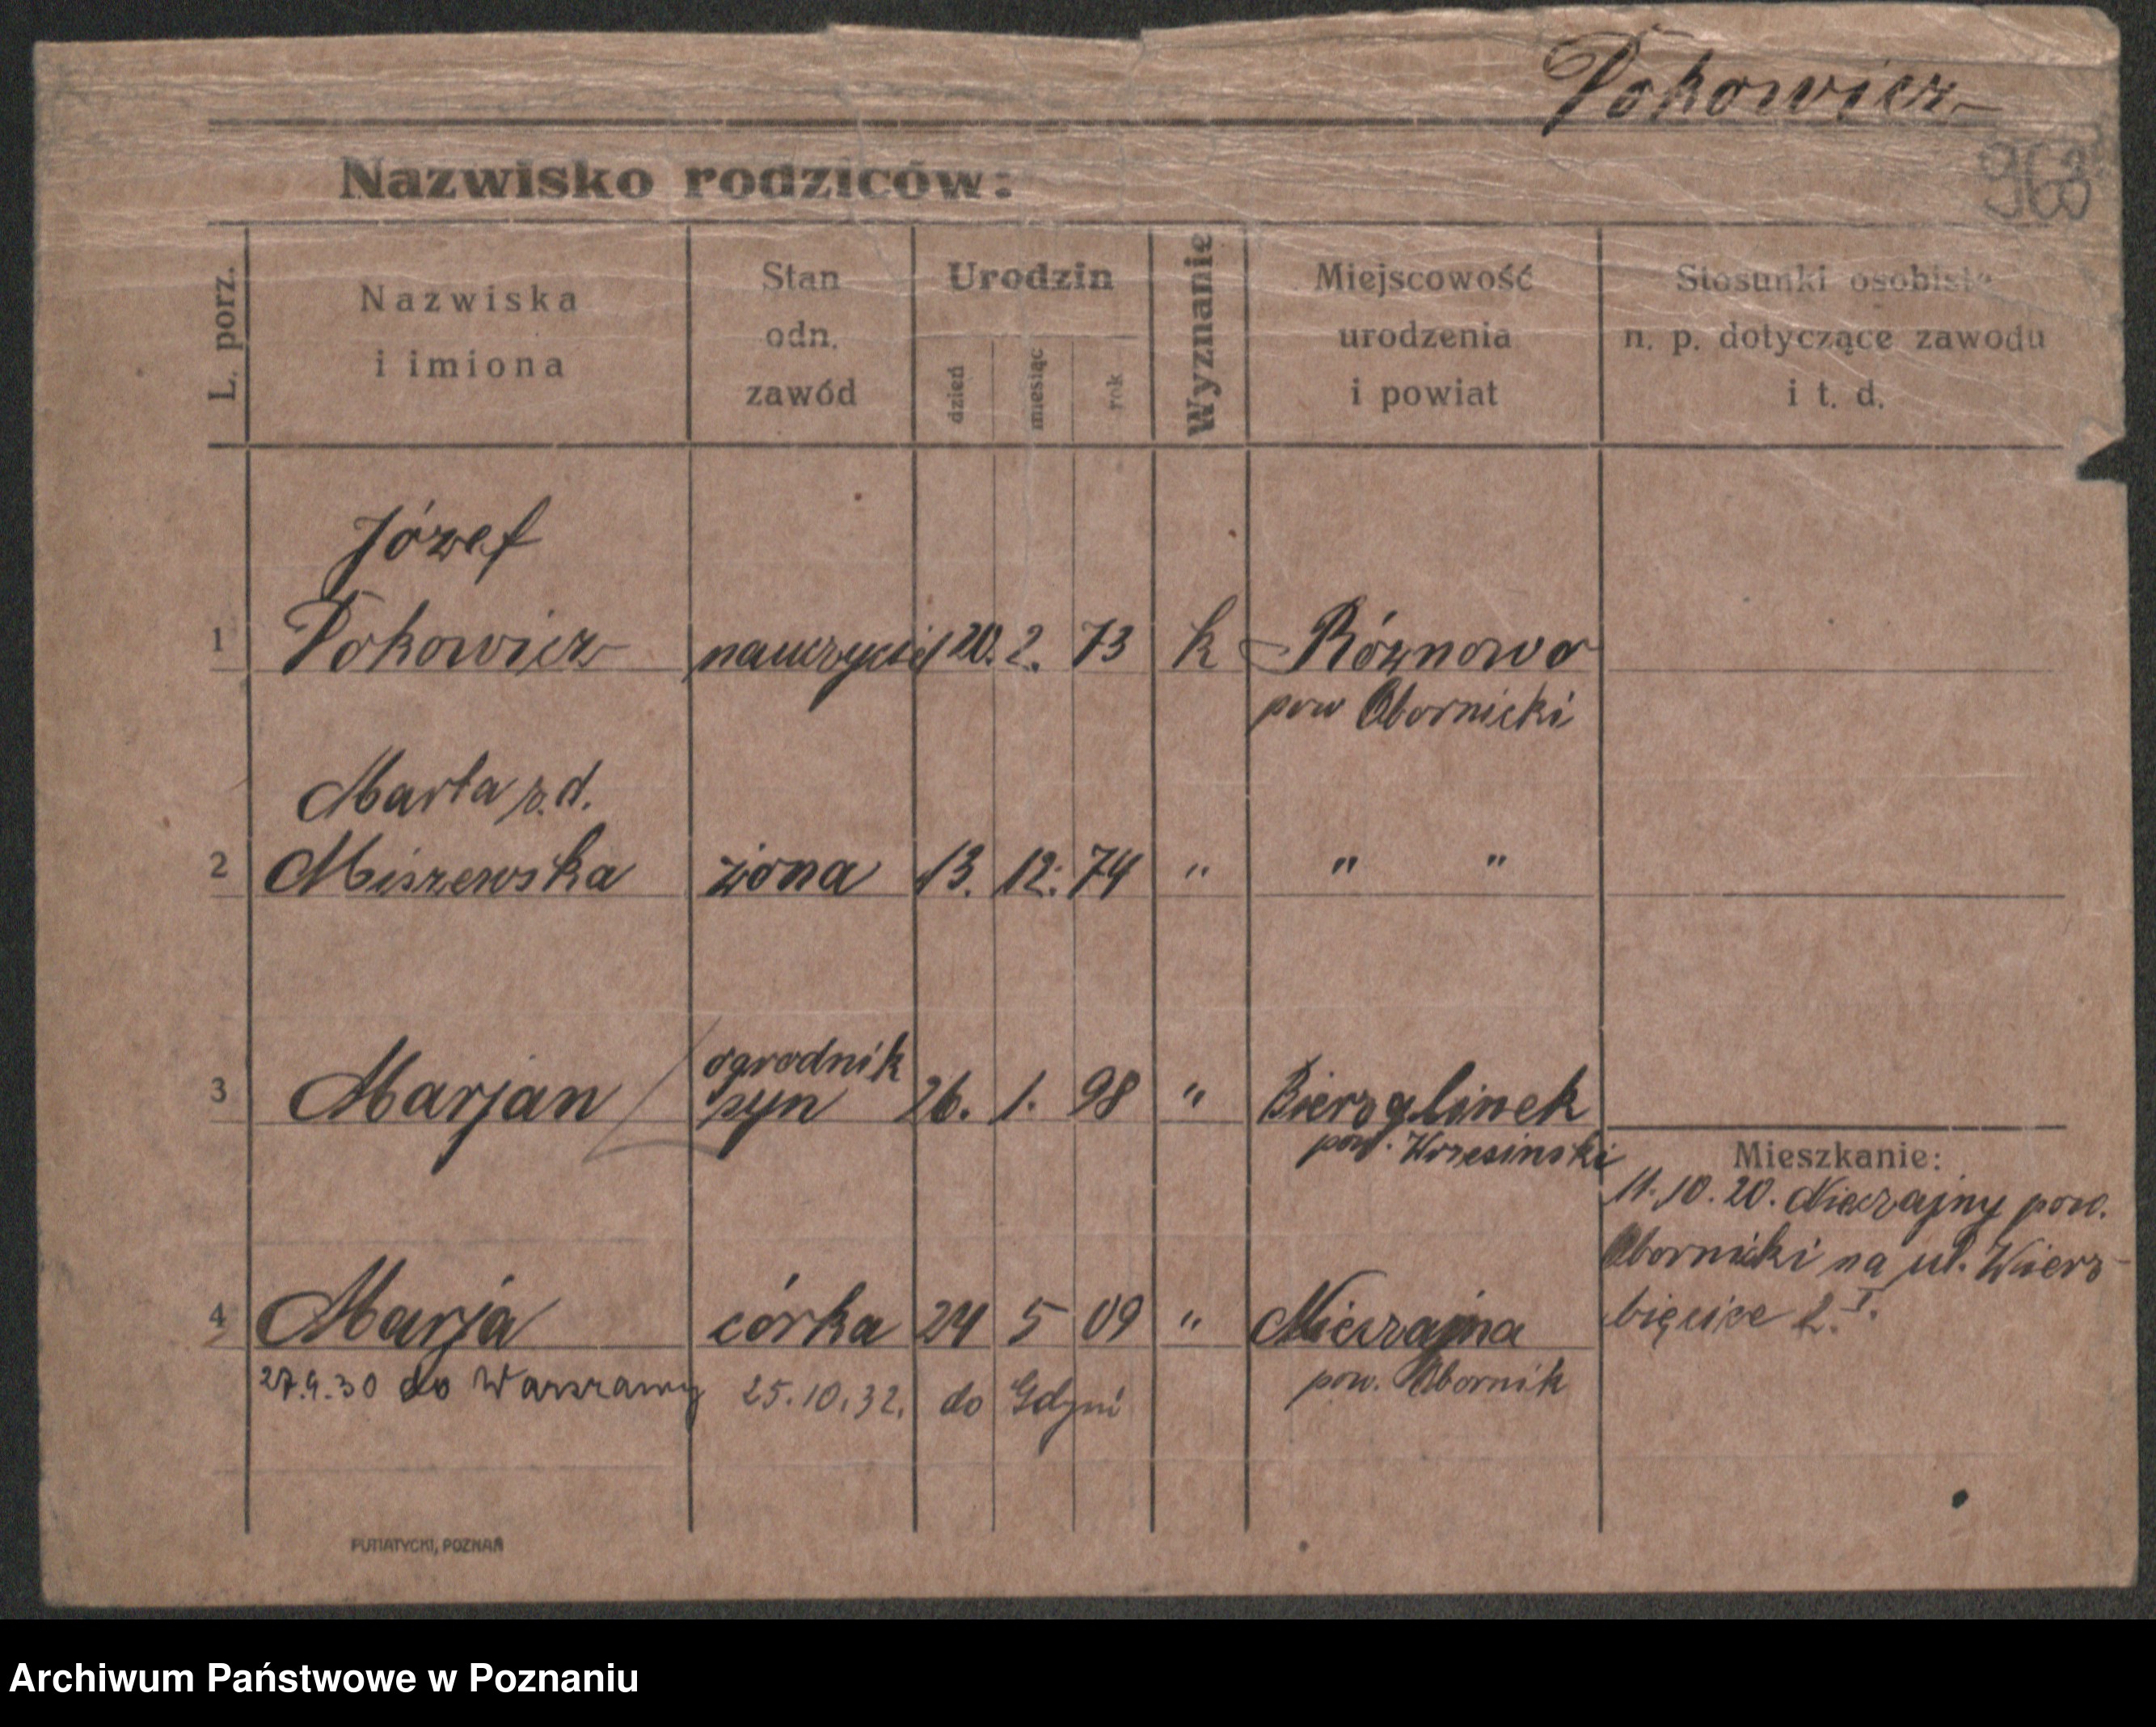 Pokowicz
963
Nazwisko rodziców:
L. porz.
Nazwiska
i imiona
Stan
odn.
zawód
Urodzin
dzień
miesiąc
rok
Wyznanie
Miejscowość
urodzenia
i powiat
Stosunki osobiste
n. p. dotyczące zawodu
i t. d.
Józef
1 Pokowicz nauczyciel 20. 2. 73 k Różnowo
pow Obornicki
Marta z.d.
2 Miszewska żona 13. 12. 74 " " "
ogrodnik
3 Marjan syn 26. 1. 98 " Bierzglinek
pow. Wrzesinski
Mieszkanie:
11. 10. 20. Nieczajny pow.
Obornicki na ul. Wierz-
bięcice 2. I.
4 Marja córka 24 5 09 " Nieczajna
pow. Obornik
27.9.30 do Warszawy 25.10.32. do Gdyni
PUTIATYCKI, POZNAŃ
Archiwum Państwowe w Poznaniu